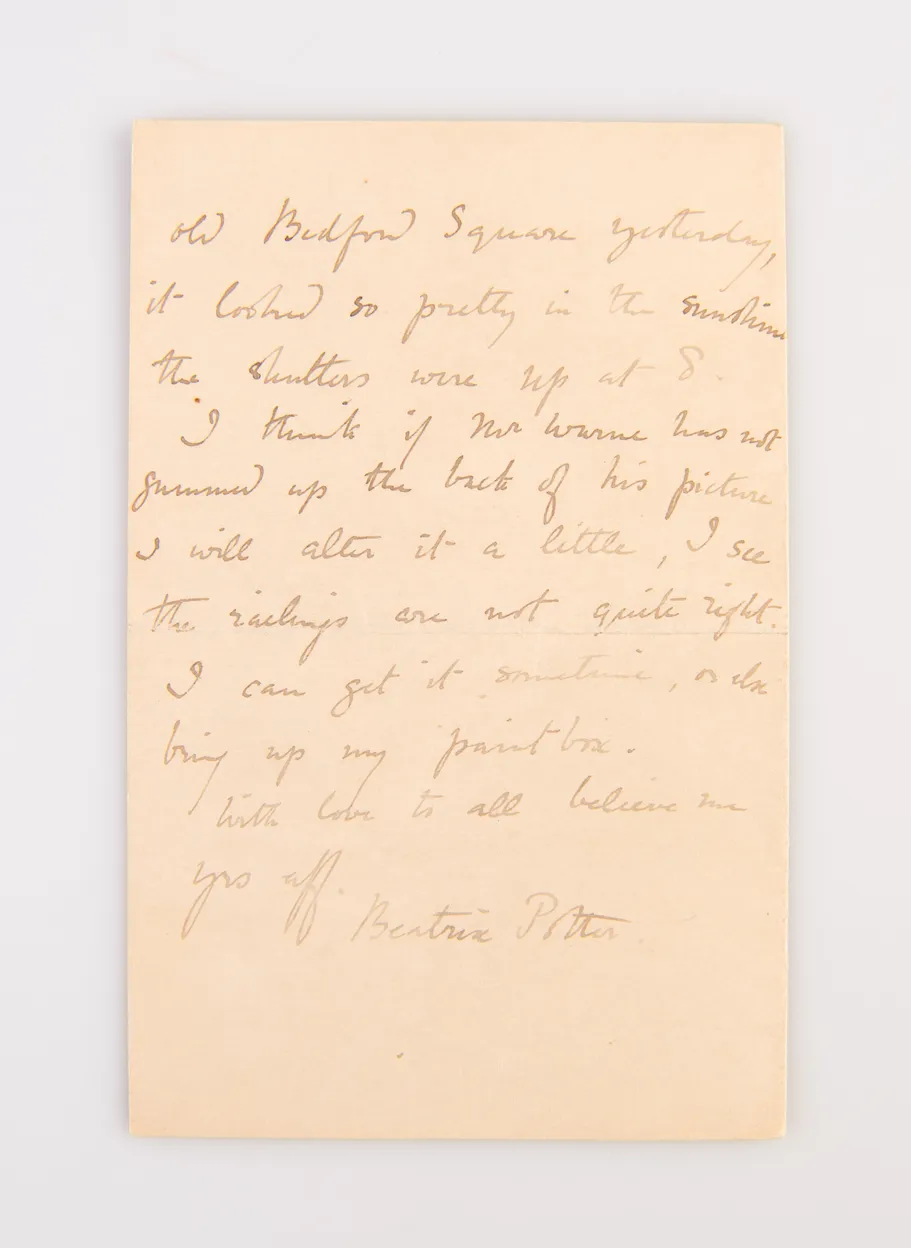 old Bedford Square yesterday,
it looked so pretty in the sunshine
the shutters were up at 8.
I think if Mr Warne has not
gummed up the back of his picture
I will alter it a little, I see
the railings are not quite right.
I can get it sometime, or else
bring up my paint box.
With love to all believe me
yrs aff.
Beatrix Potter.